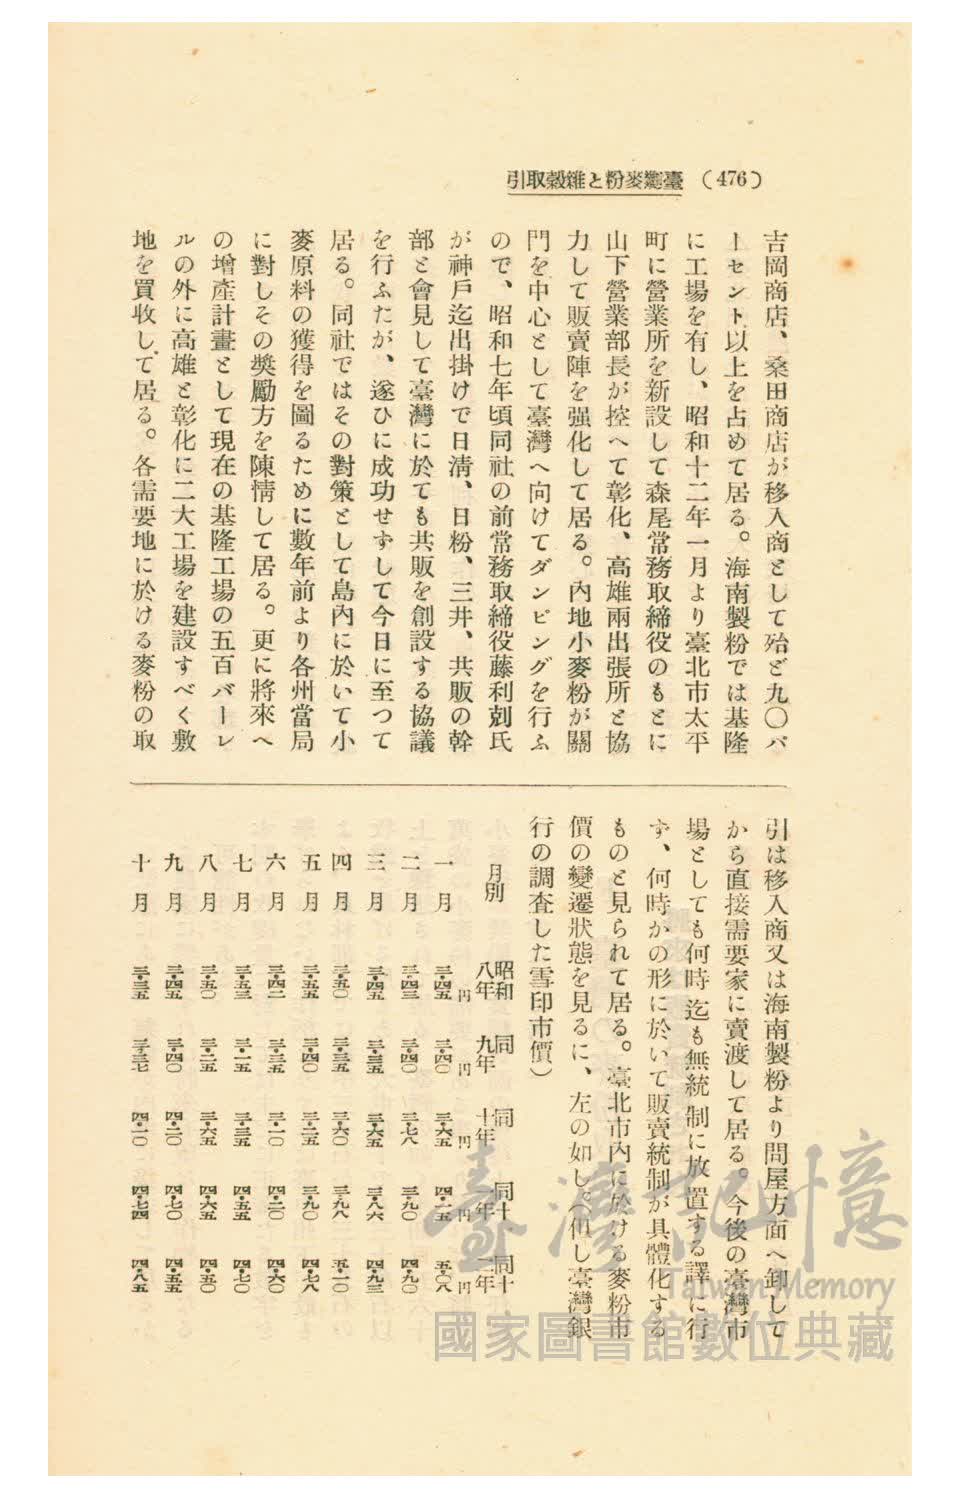 (476) 臺灣麥粉と雜穀取引
吉岡商店、桑田商店が移入商として殆ど九〇パ
ーセント以上を占めて居る。海南製粉では基隆
に工場を有し、昭和十二年一月より臺北市太平
町に營業所を新設して森尾常務取締役のもとに
山下營業部長が控へて彰化、高雄兩出張所と協
力して販賣陣を强化して居る。內地小麥粉が關
門を中心として臺灣へ向けてダンピングを行ふ
ので、昭和七年頃同社の前常務取締役藤利剋氏
が神戶迄出掛けで日淸、日粉、三井、共販の幹
部と會見して臺灣に於ても共販を創設する協議
を行ふたが、遂ひに成功せずして今日に至つて
居る。同社ではその對策として島內に於いて小
麥原料の獲得を圖るために數年前より各州當局
に對しその奬勵方を陳情して居る。更に將來へ
の增產計畫として現在の基隆工場の五百バーレ
ルの外に高雄と彰化に二大工場を建設すべく敷
地を買收して居る。各需要地に於ける麥粉の取
引は移入商又は海南製粉より問屋方面へ卸して
から直接需要家に賣渡して居る。今後の臺灣市
場としても何時迄も無統制に放置する譯に行
ず、何時かの形に於いて販賣統制が具體化する
ものと見られて居る。臺北市內に於ける麥粉市
價の變遷狀態を見るに、左の如し。（但し臺灣銀
行の調査した雪印市價）
月別 昭和八年 同九年 同十年 同十一年 同十二年
一月 三・四五円 三・四〇円 三・六五円 四・一五円 五・〇八円
二月 三・四三 三・四〇 三・七八 三・九〇 四・九〇
三月 三・四五 三・三五 三・六五 三・八六 四・九三
四月 三・五〇 三・三五 三・六〇 三・九八 五・一〇
五月 三・五五 三・四〇 三・二五 三・九〇 四・七八
六月 三・四二 三・三五 三・一〇 四・二〇 四・六〇
七月 三・五三 三・一五 三・三五 四・五五 四・七〇
八月 三・五〇 三・二五 三・六五 四・六五 四・五〇
九月 三・四五 三・四〇 四・二〇 四・七〇 四・五五
十月 三・三五 三・三七 四・一〇 四・七四 四・八五
臺灣記憶
Taiwan Memory
國家圖書館數位典藏